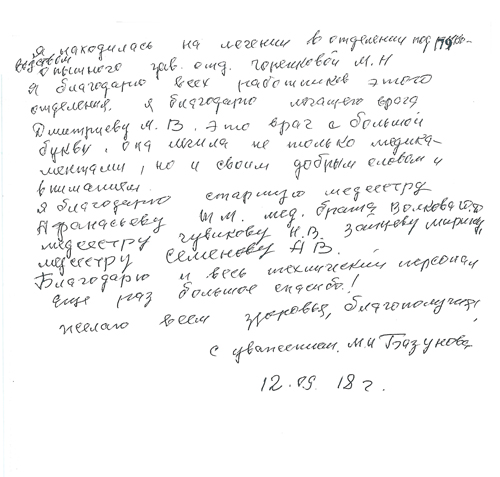 Я находилась на лечении в отделении под руко-
водством
опытного зав. отд. Горенковой М.Н
Я благодарю всех работников этого
отделения. Я благодарю лечащего врача
Дмитриеву М.В. Это врач с большой
буквы, она лечила не только медика-
ментами, но и своим добрым словом и
вниманием.
Я благодарю старшую медсестру
Афанасьеву Ш.М. мед. брата Волкова
медсестру Чувикову Н.В. Зайцеву Марину
медсестру Семенову А В.
Благодарю и весь технический персонал
Еще раз большое спасибо!
желаю всем здоровья, благополучия,
с уважением. М.И Базунова
12.09.18 г.